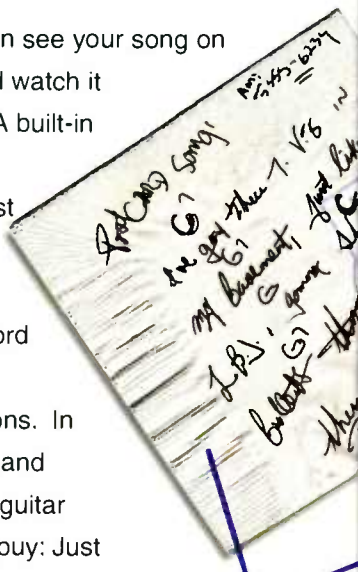 n see your song on
d watch it
A built-in
st
ord
ons. In
and
guitar
buy: Just
Ami
555-6234
Postcard Song
G7
I've got three T.V.'s IN
G7
my Basement, Just Lik
G
L.B.J.'
G7